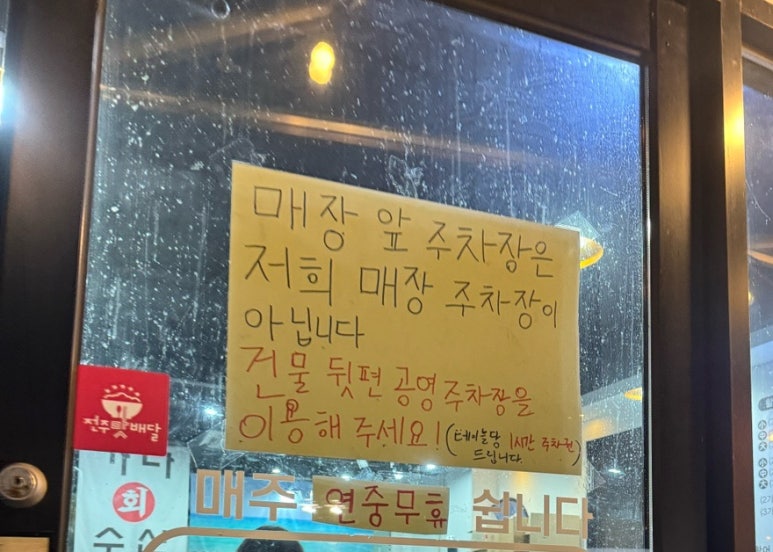 매장 앞 주차장은
저희 매장 주차장이
아닙니다
건물 뒷편 공영주차장을
이용해 주세요! (테이블당 1시간 주차권
드립니다.)
전주맛배달
회
매주 연중무휴 쉽니다